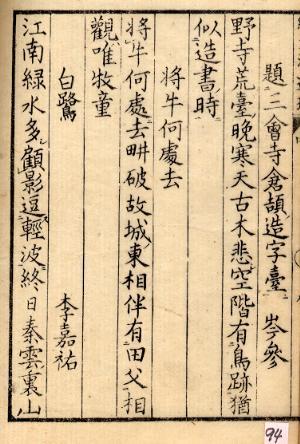 題三會寺倉頡造字臺　岑參
野寺荒臺晚寒天古木悲空階有鳥跡猶
似造書時
將牛何處去
將牛何處去畊破故城東相伴有田父相
觀唯牧童
白鷺　李嘉祐
江南綠水多顧影逗輕波終日秦雲裏山
94